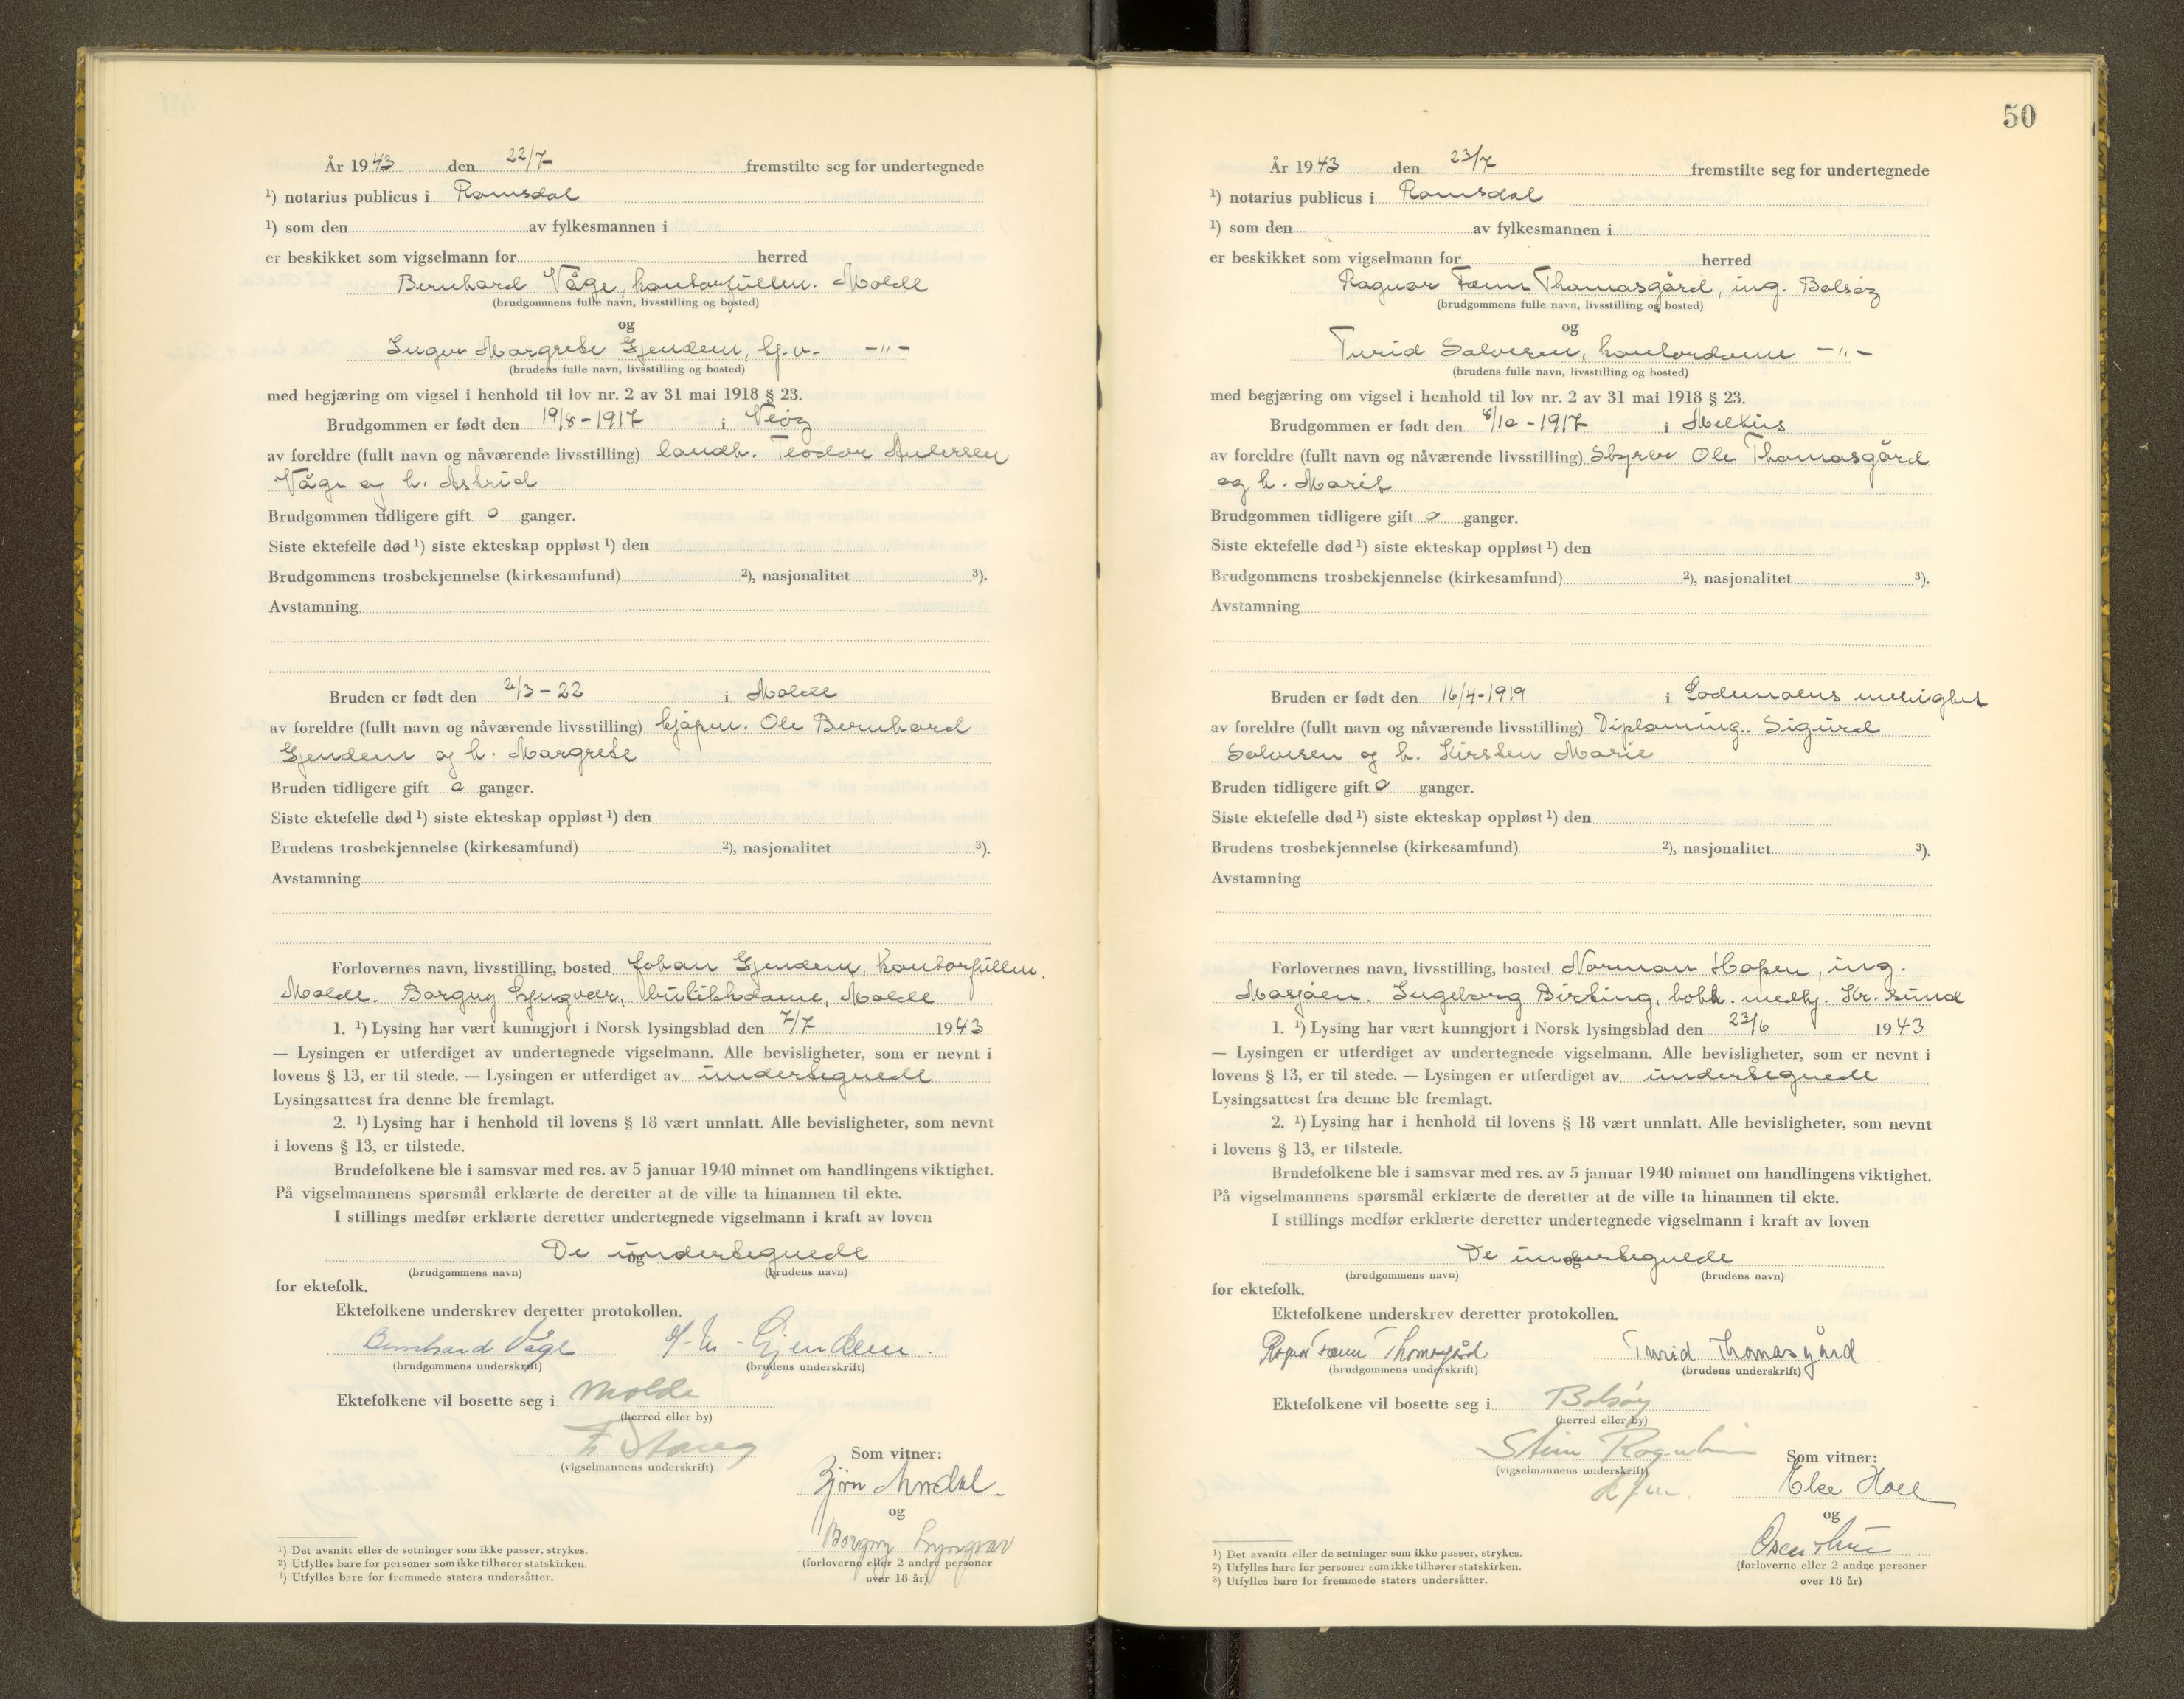 År 1943 den 22/7 fremstilte seg for undertegnede
¹) notarius publicus i Romsdal
¹) som den av fylkesmannen i
er beskikket som vigselmann for herred
Bernhard Våge, kontorfullm. Molde
(brudgommens fulle navn, livsstilling og bosted)
og
Inger Margrete Gjendem, hj.v. -"-
(brudens fulle navn, livsstilling og bosted)
med begjæring om vigsel i henhold til lov nr. 2 av 31 mai 1918 § 23.
Brudgommen er født den 19/8-1917 i Veøy
av foreldre (fullt navn og nåværende livsstilling) landh. Teodor Andersen
Våge og h. Astrid
Brudgommen tidligere gift 0 ganger.
Siste ektefelle død ¹) siste ekteskap oppløst ¹) den
Brudgommens trosbekjennelse (kirkesamfund) ²), nasjonalitet ³).
Avstamning
Bruden er født den 2/3-22 i Molde
av foreldre (fullt navn og nåværende livsstilling) kjøpm. Ole Bernhard
Gjendem og h. Margrete
Bruden tidligere gift 0 ganger.
Siste ektefelle død ¹) siste ekteskap oppløst ¹) den
Brudens trosbekjennelse (kirkesamfund) ²), nasjonalitet ³).
Avstamning
Forlovernes navn, livsstilling, bosted Johan Gjendem, kontorfullm.
Molde. Borgny Lyngvær, butikkdame, Molde
1. ¹) Lysing har vært kunngjort i Norsk lysingsblad den 7/7 1943
— Lysingen er utferdiget av undertegnede vigselmann. Alle bevisligheter, som er nevnt i
lovens § 13, er til stede. — Lysingen er utferdiget av undertegnede
Lysingsattest fra denne ble fremlagt.
2. ¹) Lysing har i henhold til lovens § 18 vært unnlatt. Alle bevisligheter, som nevnt
i lovens § 13, er tilstede.
Brudefolkene ble i samsvar med res. av 5 januar 1940 minnet om handlingens viktighet.
På vigselmannens spørsmål erklærte de deretter at de ville ta hinannen til ekte.
I stillings medfør erklærte deretter undertegnede vigselmann i kraft av loven
De undertegnede
og
(brudgommens navn) (brudens navn)
for ektefolk.
Ektefolkene underskrev deretter protokollen.
Bernhard Våge I.M. Gjendem.
(brudgommens underskrift) (brudens underskrift)
Ektefolkene vil bosette seg i Molde
(herred eller by)
(vigselmannens underskrift)
Som vitner:
Bjørn
og
Borgny Lyngvær
(forloverne eller 2 andre personer
over 18 år)
¹) Det avsnitt eller de setninger som ikke passer, strykes.
²) Utfylles bare for personer som ikke tilhører statskirken.
³) Utfylles bare for fremmede staters undersåtter.
50
År 1943 den 23/7 fremstilte seg for undertegnede
¹) notarius publicus i Romsdal
¹) som den av fylkesmannen i
er beskikket som vigselmann for herred
Ragnar Thomasgård, ing. Bolsøy
(brudgommens fulle navn, livsstilling og bosted)
og
Turid Salvesen, kontordame -"-
(brudens fulle navn, livsstilling og bosted)
med begjæring om vigsel i henhold til lov nr. 2 av 31 mai 1918 § 23.
Brudgommen er født den 8/10-1917 i Melhus
av foreldre (fullt navn og nåværende livsstilling) Styrer Ole Thomasgård
og h. Marit
Brudgommen tidligere gift 0 ganger.
Siste ektefelle død ¹) siste ekteskap oppløst ¹) den
Brudgommens trosbekjennelse (kirkesamfund) ²), nasjonalitet ³).
Avstamning
Bruden er født den 16/4-1919 i Lademoens menighet
av foreldre (fullt navn og nåværende livsstilling) Diploming. Sigurd
Salvesen og h. Kirsten Marie
Bruden tidligere gift 0 ganger.
Siste ektefelle død ¹) siste ekteskap oppløst ¹) den
Brudens trosbekjennelse (kirkesamfund) ²), nasjonalitet ³).
Avstamning
Forlovernes navn, livsstilling, bosted Norman Hopen, ing.
Mosjøen. Ingeborg Birting, bokh. medhj. Kr.sund
1. ¹) Lysing har vært kunngjort i Norsk lysingsblad den 23/6 1943
— Lysingen er utferdiget av undertegnede vigselmann. Alle bevisligheter, som er nevnt i
lovens § 13, er til stede. — Lysingen er utferdiget av undertegnede
Lysingsattest fra denne ble fremlagt.
2. ¹) Lysing har i henhold til lovens § 18 vært unnlatt. Alle bevisligheter, som nevnt
i lovens § 13, er tilstede.
Brudefolkene ble i samsvar med res. av 5 januar 1940 minnet om handlingens viktighet.
På vigselmannens spørsmål erklærte de deretter at de ville ta hinannen til ekte.
I stillings medfør erklærte deretter undertegnede vigselmann i kraft av loven
De undertegnede
og
(brudgommens navn) (brudens navn)
for ektefolk.
Ektefolkene underskrev deretter protokollen.
Ragnar Thomasgård Turid Thomasgård
(brudgommens underskrift) (brudens underskrift)
Ektefolkene vil bosette seg i Bolsøy
(herred eller by)
Stein Rognlien
(vigselmannens underskrift)
Som vitner:
Else Hoel
og
(forloverne eller 2 andre personer
over 18 år)
¹) Det avsnitt eller de setninger som ikke passer, strykes.
²) Utfylles bare for personer som ikke tilhører statskirken.
³) Utfylles bare for fremmede staters undersåtter.